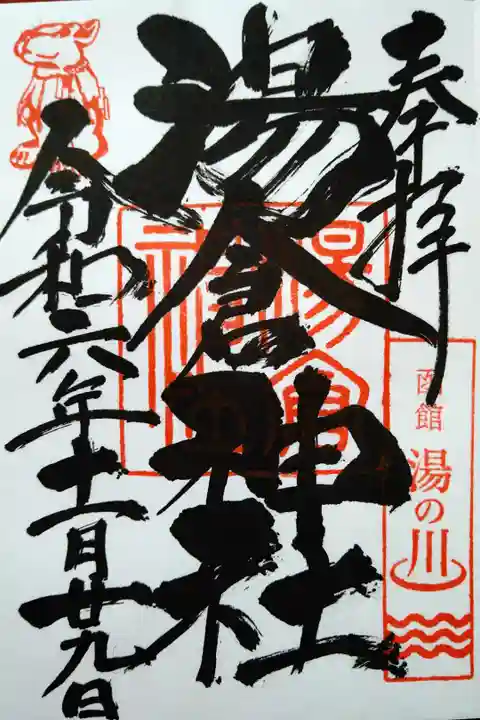 奉拝
函館
湯の川
湯倉神社
令和六年十一月廿九日